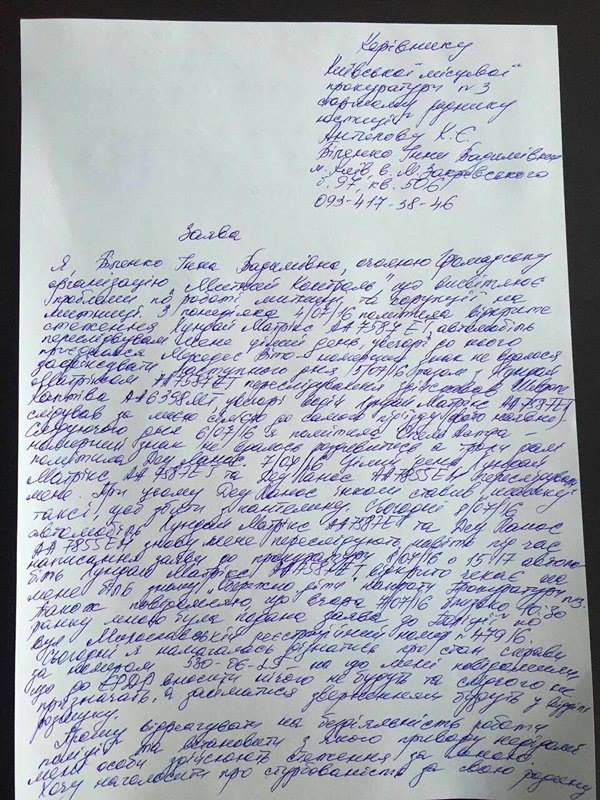 Керівнику
Київської місцевої
прокуратури №3
старшому раднику
юстиції
Антипову К.Є
Віленко Інни Вадимівни
м. Київ, в. М. Закревського
б. 97, кв. 506
093-417-38-46
Заява
Я, Віленко Інна Вадимівна, очолюю Громадську
організацію „Митний Контроль", що висвітлює
проблеми по роботі митниці, та корупції на
митниці. З понеділка 4/07/16 помітила відкрите
стеження Хундай Матрікс АА 7587 ЕІ, автомобіль
переслідував мене цілий день, увечері до нього
приєднався Мерседес Віто - номерний знак не вдалося
зафіксувати. Наступного дня 5/07/16 разом з Хундай
Матріксом АА7587ЕІ переслідування здійснював Шевроле
Каптіва АА6358МТ, увечері водій Хундай Матрікс АА 7587ЕІ
слідував за мною до самого під'їзду (фото наявне)
Середнього дня 6/07/16 я помітила
номерний знак не вдалося роздивитися а трохи далі
помітила Деу Ланос. 7/07/16 цілий день Хундай
Матрікс АА 7587ЕІ та Деу Ланос АА7855ЕМ переслідували
мене. При цьому Деу Ланос інколи ставив „шашку"
таксі, щоб збити з пантелику. Сьогодні 8/07/16
автомобіль Хундай Матрікс АА7587ЕІ та Деу Ланос
АА 7855ЕМ знову мене переслідують, навіть під час
написання заяви до прокуратури 8/07/16 о 15:17 автомо-
біль Хундай Матрікс АА 7587ЕІ відкрито чекає на
мене біля знаку „Обережно діти" навпроти Прокуратури №3.
Також повідомляю, що вчора 7/07/16 близько 10:30
ранку мною була подана заява до Поліції по
вул. Милославській реєстраційний номер №479/6.
Сьогодні я намагалась дізнатись про стан справи
за номером 530-86-25 - на що мені повідомили
що до ЄРДР вносити нічого не будуть та слідчого не
призначать, а займатися зверненням будуть у відділі
розшуку.
Прошу відреагувати на бездіяльність роботи
поліції та встановити з якого приводу невідомі
мені особи здійснюють стеження за мною.
Хочу наголосити про стурбованість за свою родину